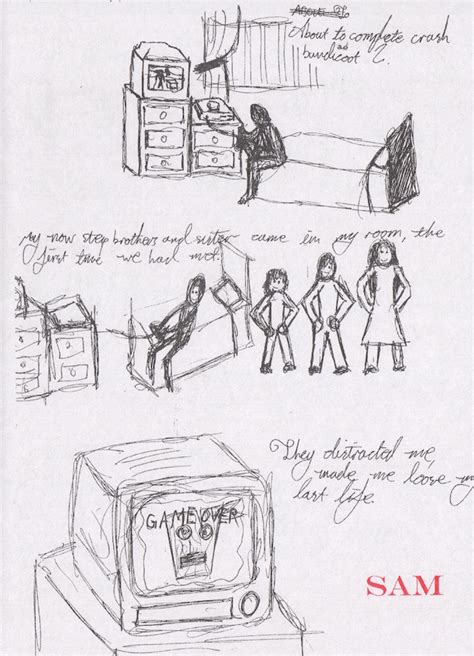 About
About to complete crash
bandicoot 2.
My now step brothers and sister came in my room, the
first time we had met.
They distracted me,
made me loose my
last life.
GAME OVER
SAM